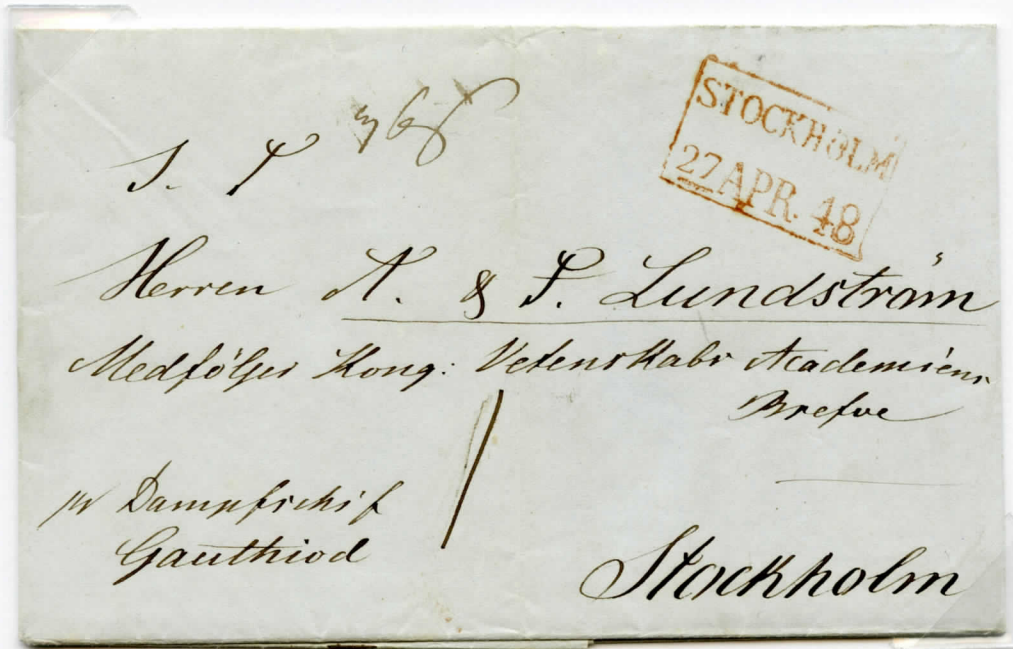 STOCKHOLM
27 APR. 48
S. T
Herren A. & P. Lundström
Medfölger Kong: Vetenskabs Academiens
Brefve
pr Dampfschif
Gauthiod
Stockholm